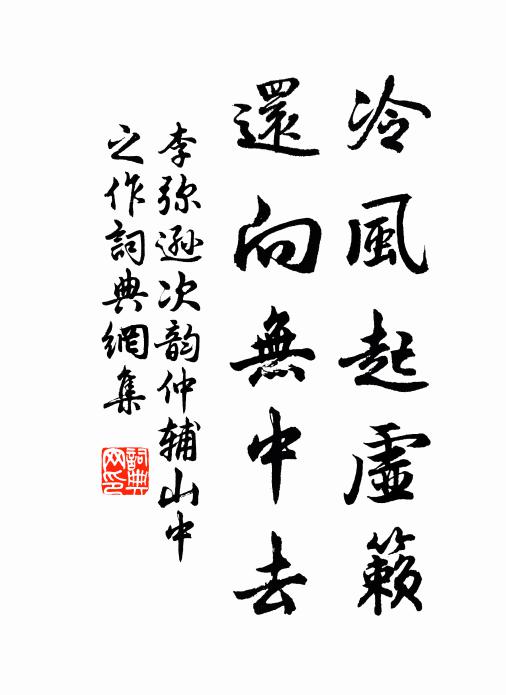 冷風起虛籟
還向無中去
李弥遜次韵仲辅山中
之作詞典網集
詞典网印